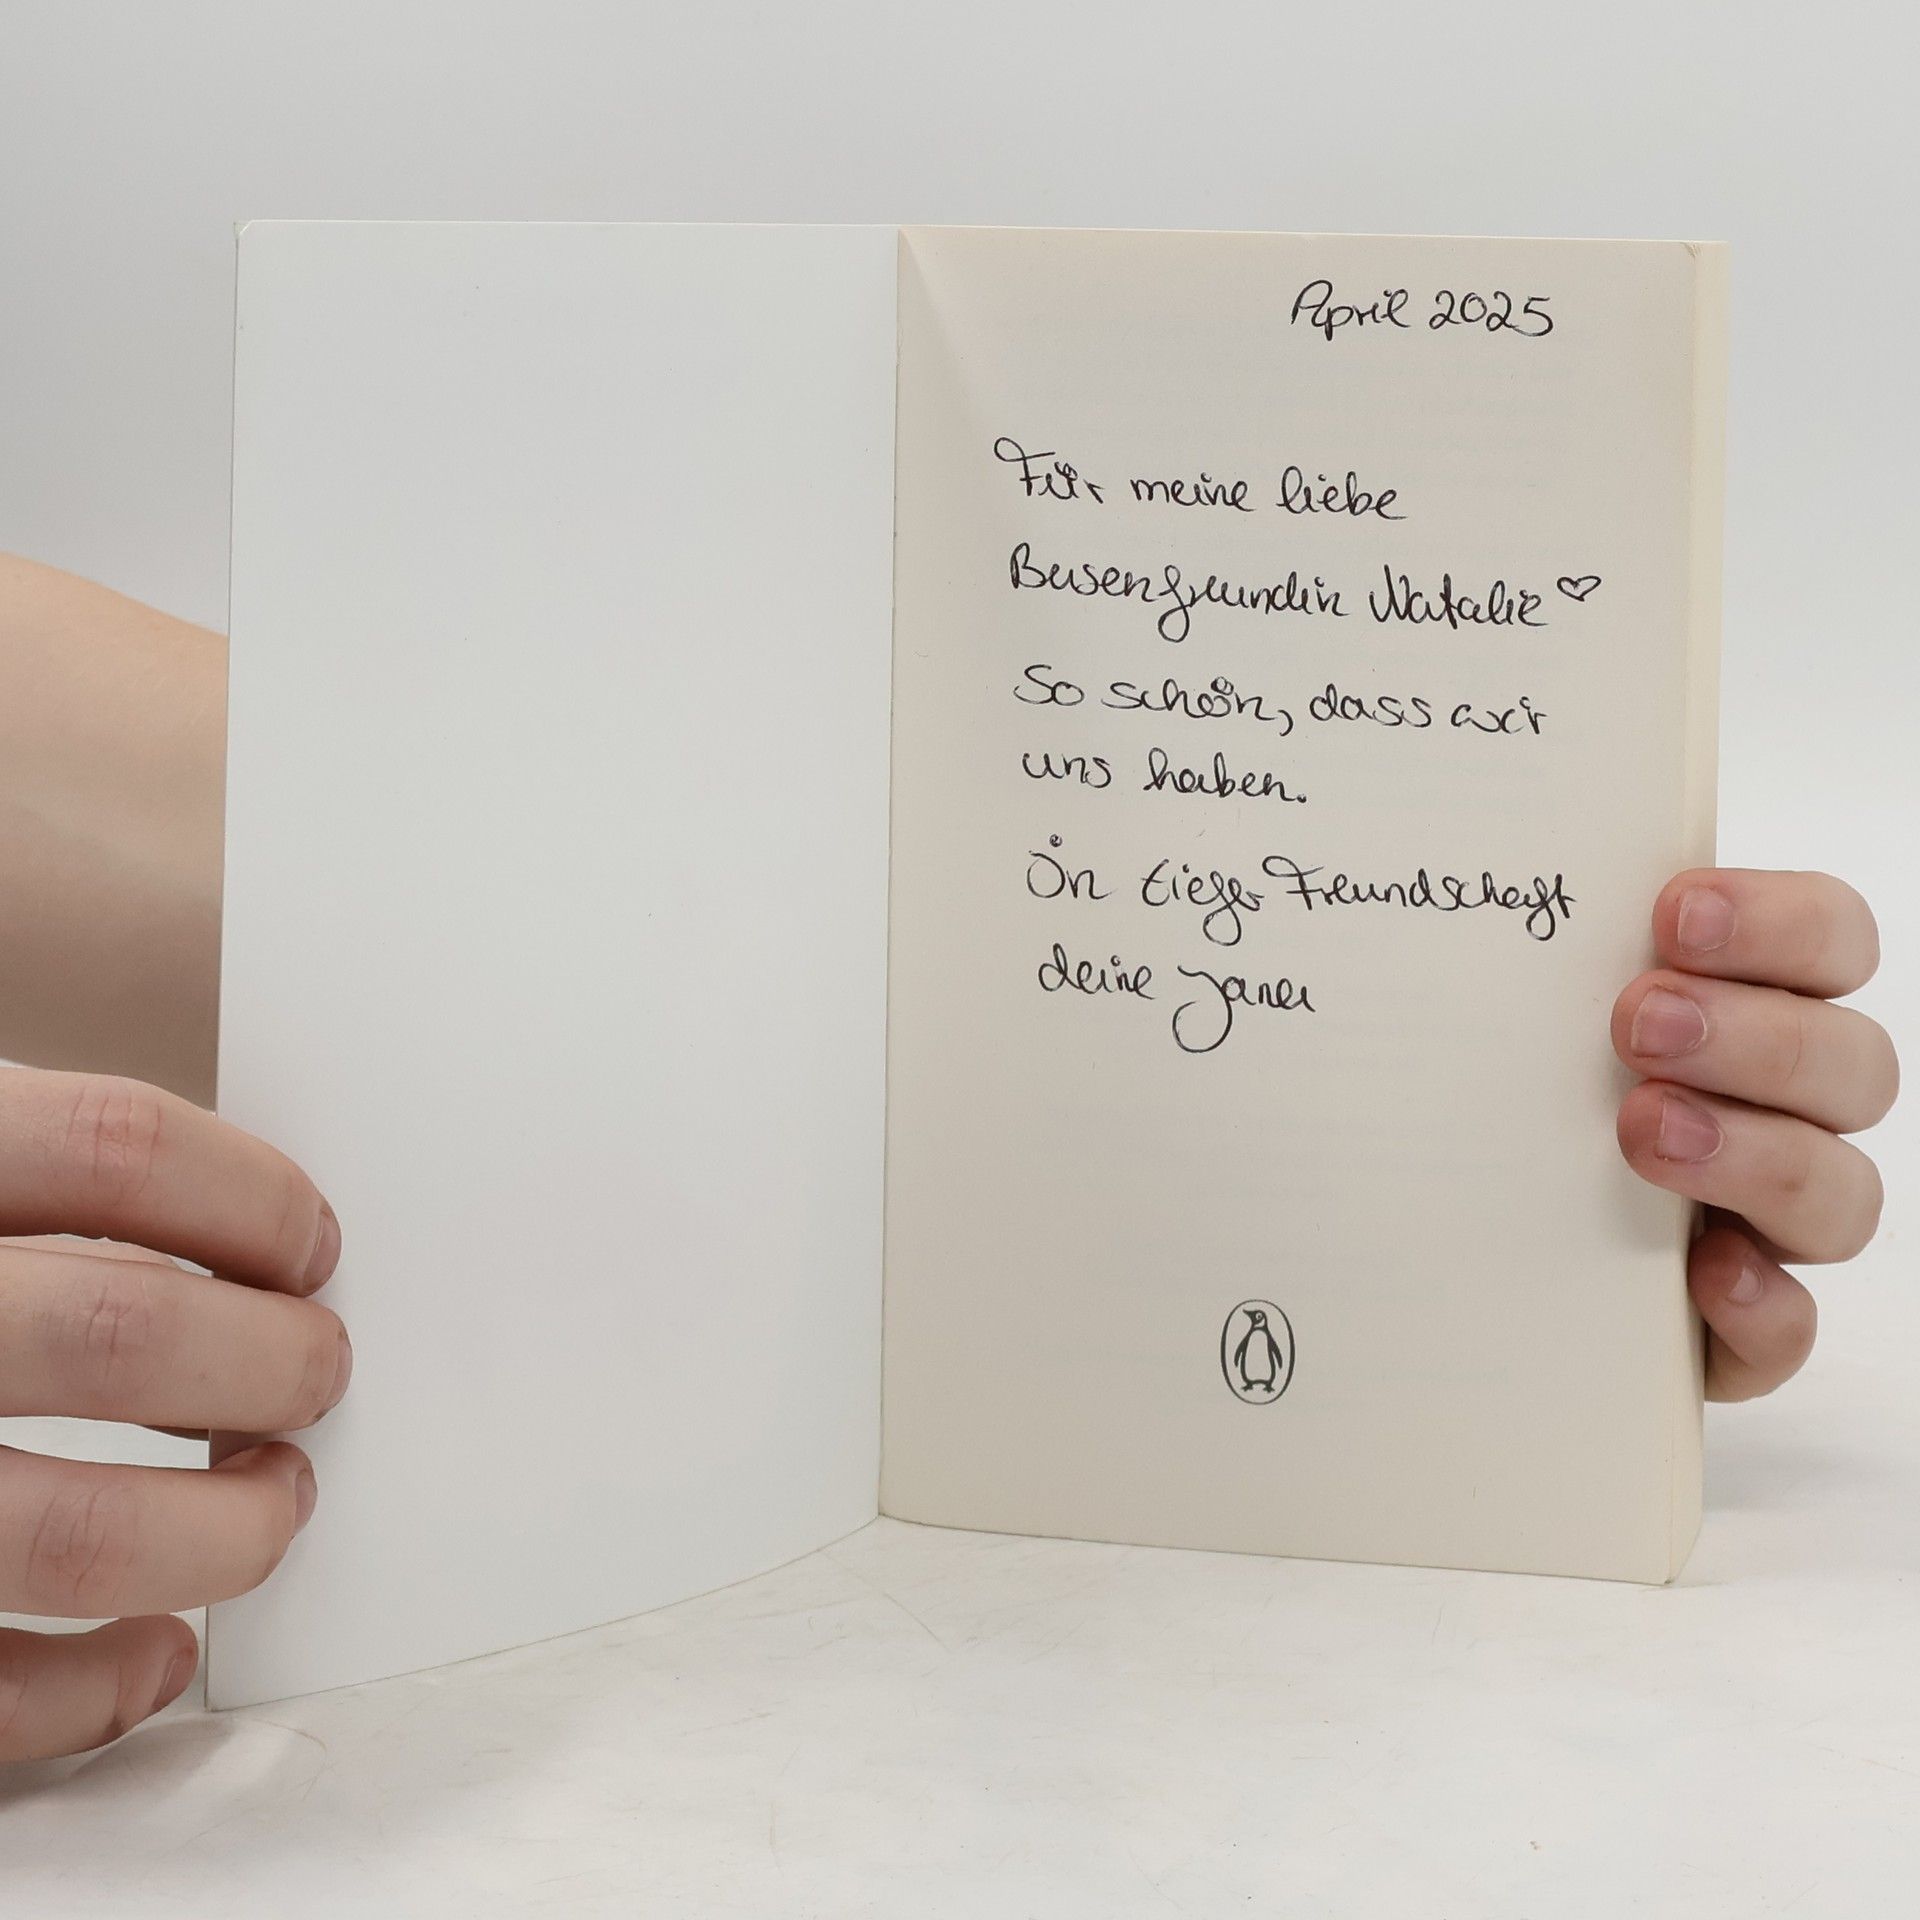 April 2025
Für meine liebe
Busenfreundin Natalie ♡
So schön, dass wir
uns haben.
In tiefer Freundschaft
deine